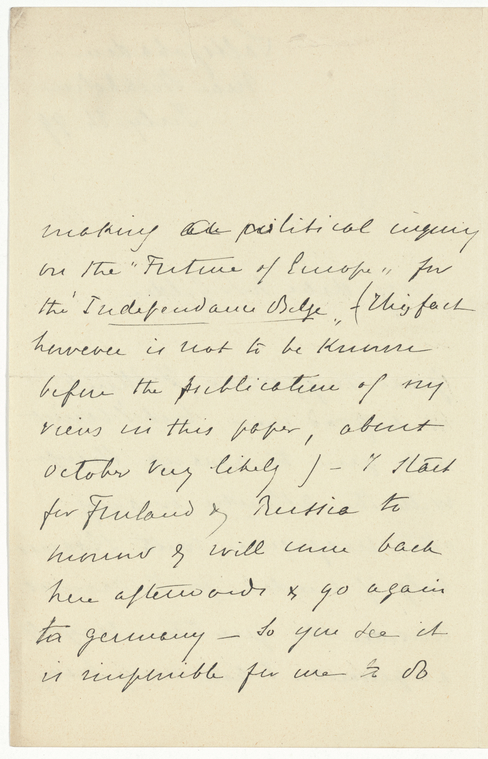 making a political inquiry
on the "Future of Europe" for
the "Independance Belge" - (This fact
however is not to be known
before the publication of my
views in this paper, about
october very likely) - I start
for Finland & Russia to
morrow & will come back
here afterwards & go again
to germany - So you see it
is impossible for me to do